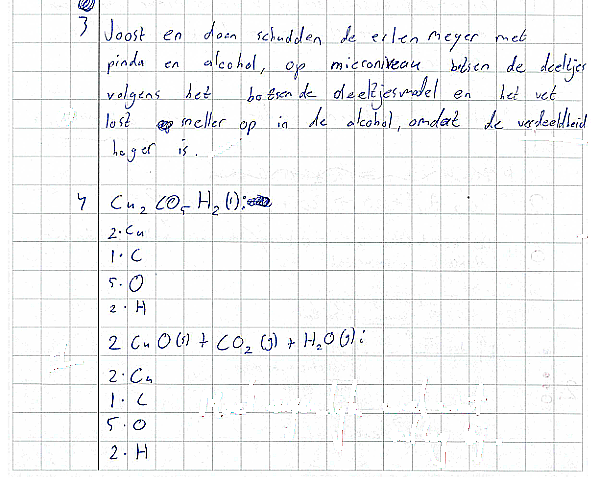 3 Joost en daan schudden de erlenmeyer met
pinda en alcohol, op microniveau botsen de deeltjes
volgens het botsende deeltjesmodel en het vet
lost sneller op in de alcohol, omdat de verdeeldleid
hoger is.
4 Cu₂ CO₅ H₂ (s):
2·Cu
1·C
5·O
2·H
2 CuO(s) + CO₂ (g) + H₂O(g):
2·Cu
1·C
5·O
2·H